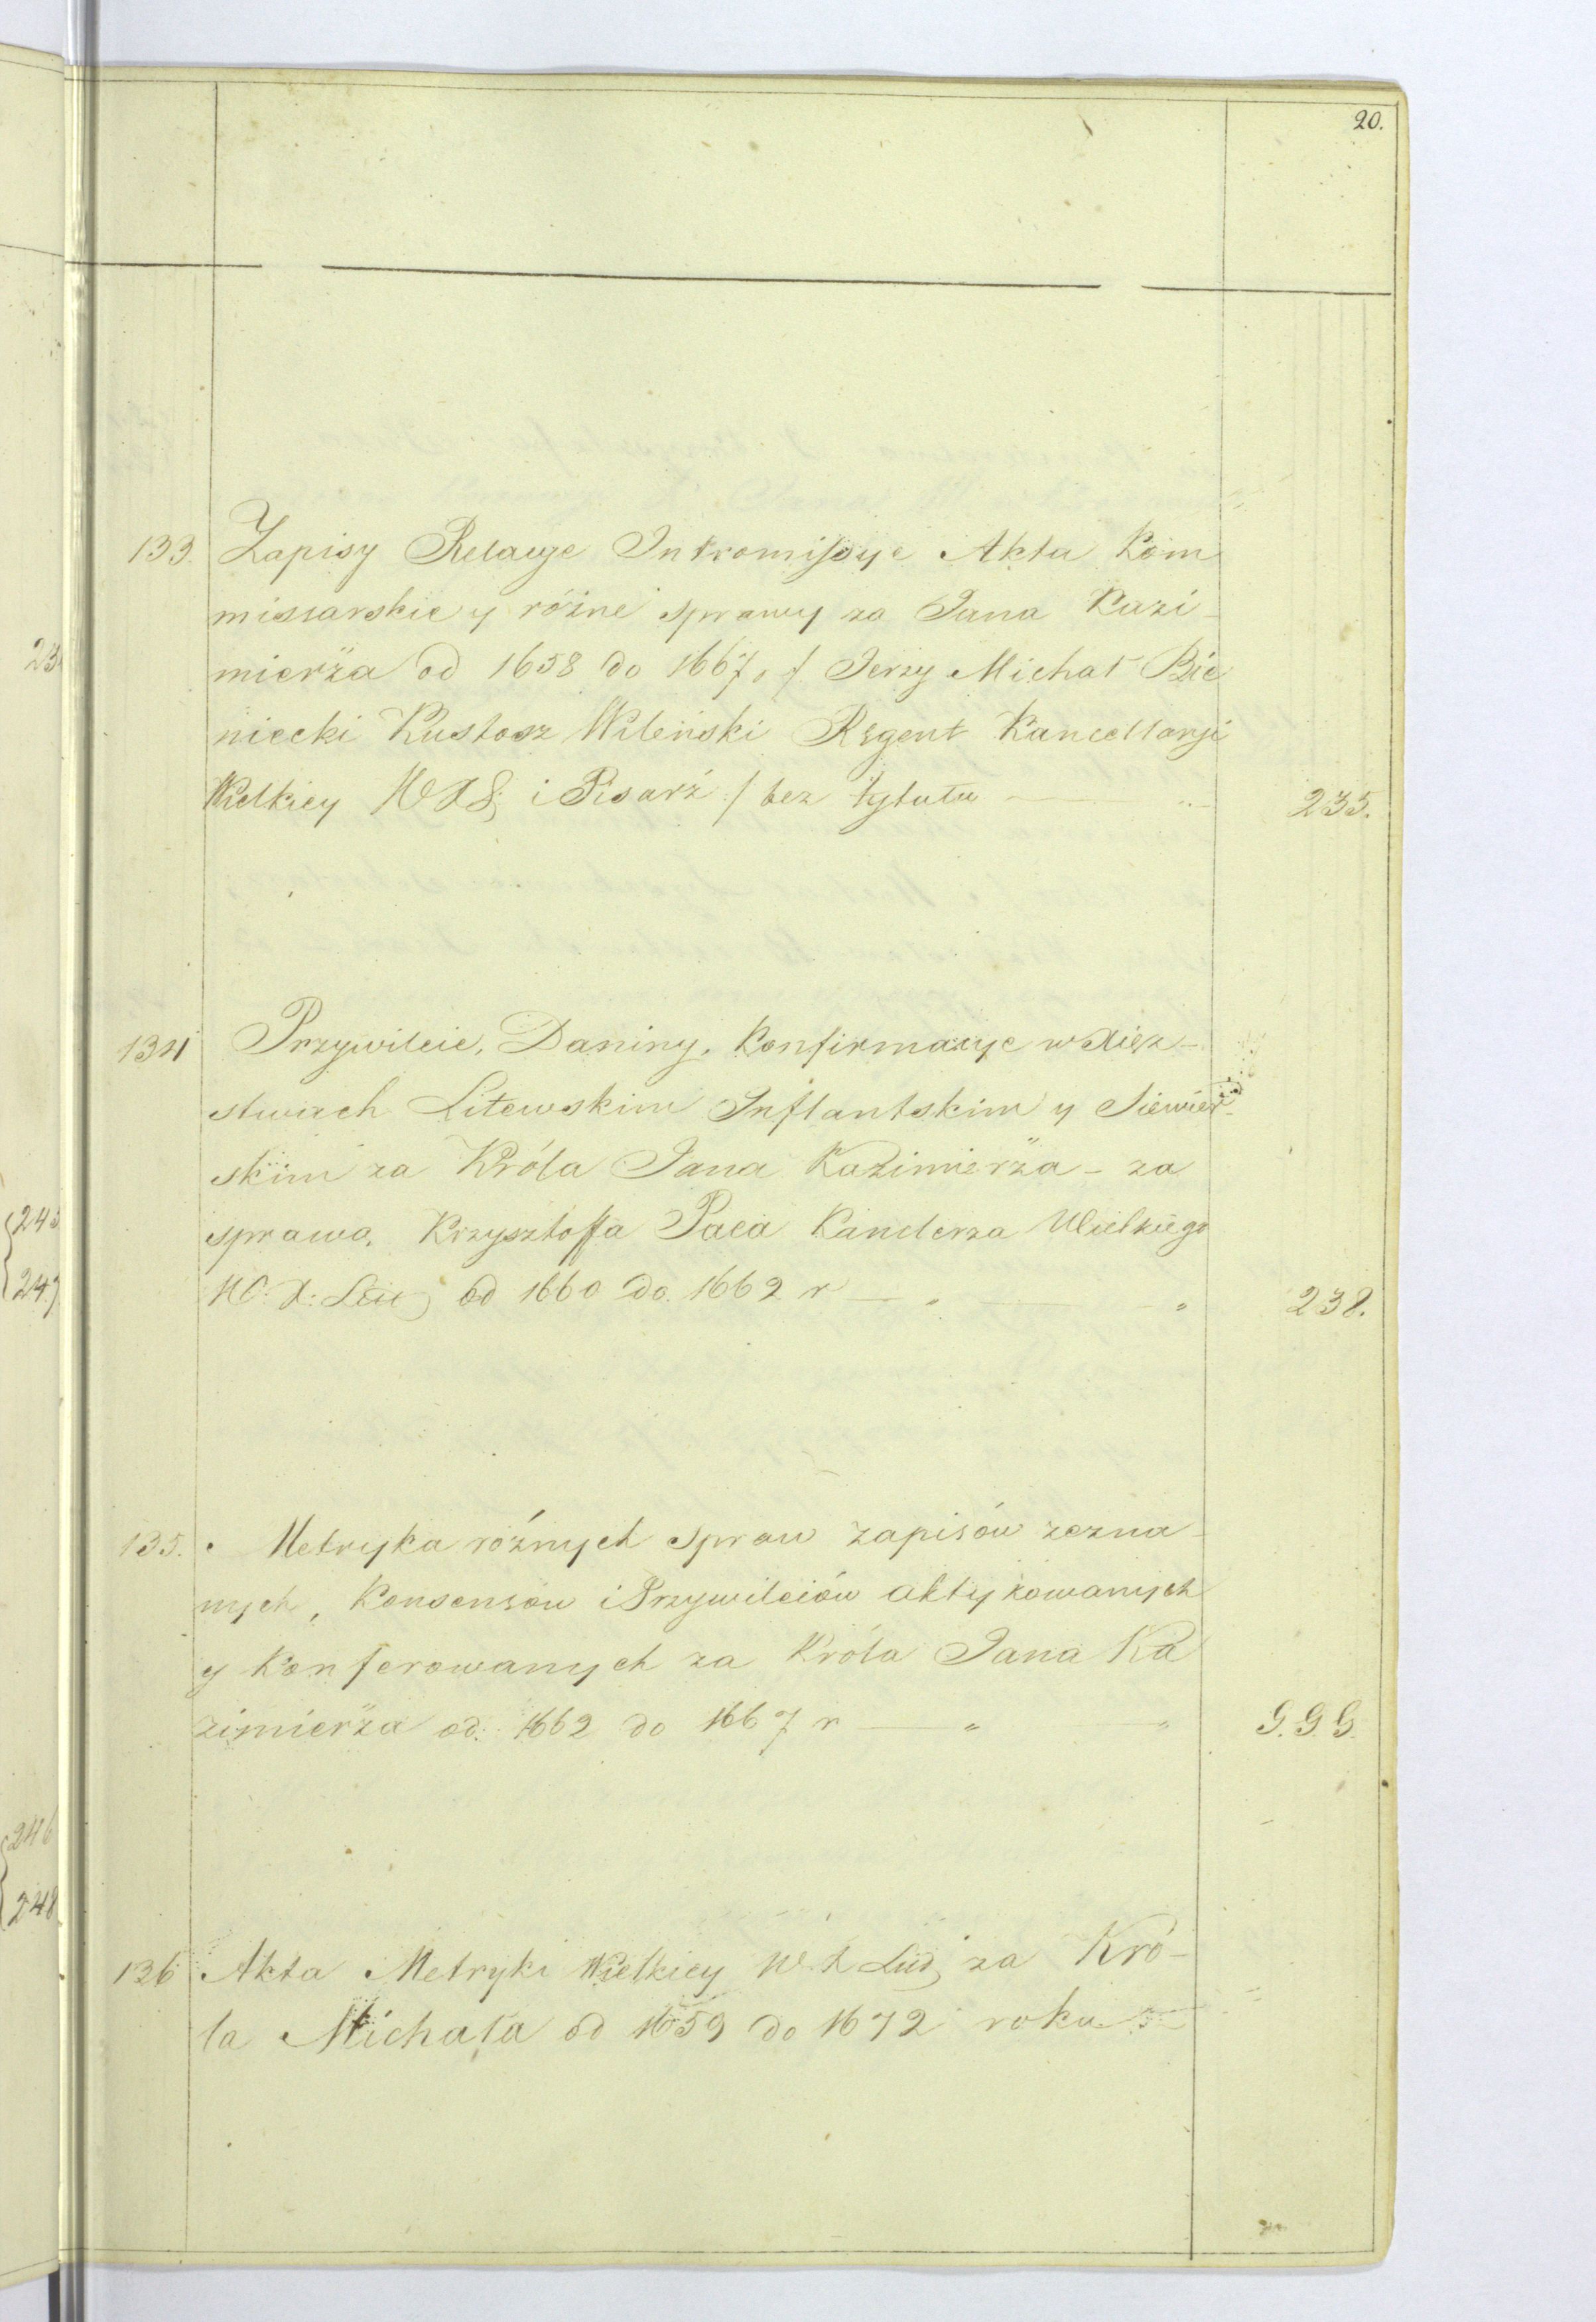 20.
133. Zapisy Relacye Intromissye Akta Kom
missarskie y różne sprawy za Jana Kazi-
mierża od 1658 do 1667. /. Jerzy Michał Bie
niecki Kustosz Wileński Regent Kancellaryi
Wielkiey W X L i Pisarż ./ bez tytułu 235.
134 Przywileie, Daniny, Konfirmacye w Xięz-
stwach Litewskim Inflantskim y Siewier-
skim za Króla Jana Kazimierża - za
sprawą Krzysztoffa Paca Kanclerza Wielkiego
W. X: Litt od 1660 do 1662 r — " — " 238.
135. Metryka różnych spraw zapisów zezna-
nych, Konsensów i Przywileiów aktykowanych
y Konferowanych za Króla Jana Ka
zimierża od 1662 do 1667 r — " — " G. G. G.
136 Akta Metryki Wielkiey W. X za Kró-
la Michała od 1659 do 1672 roku
23
243
247
246
248